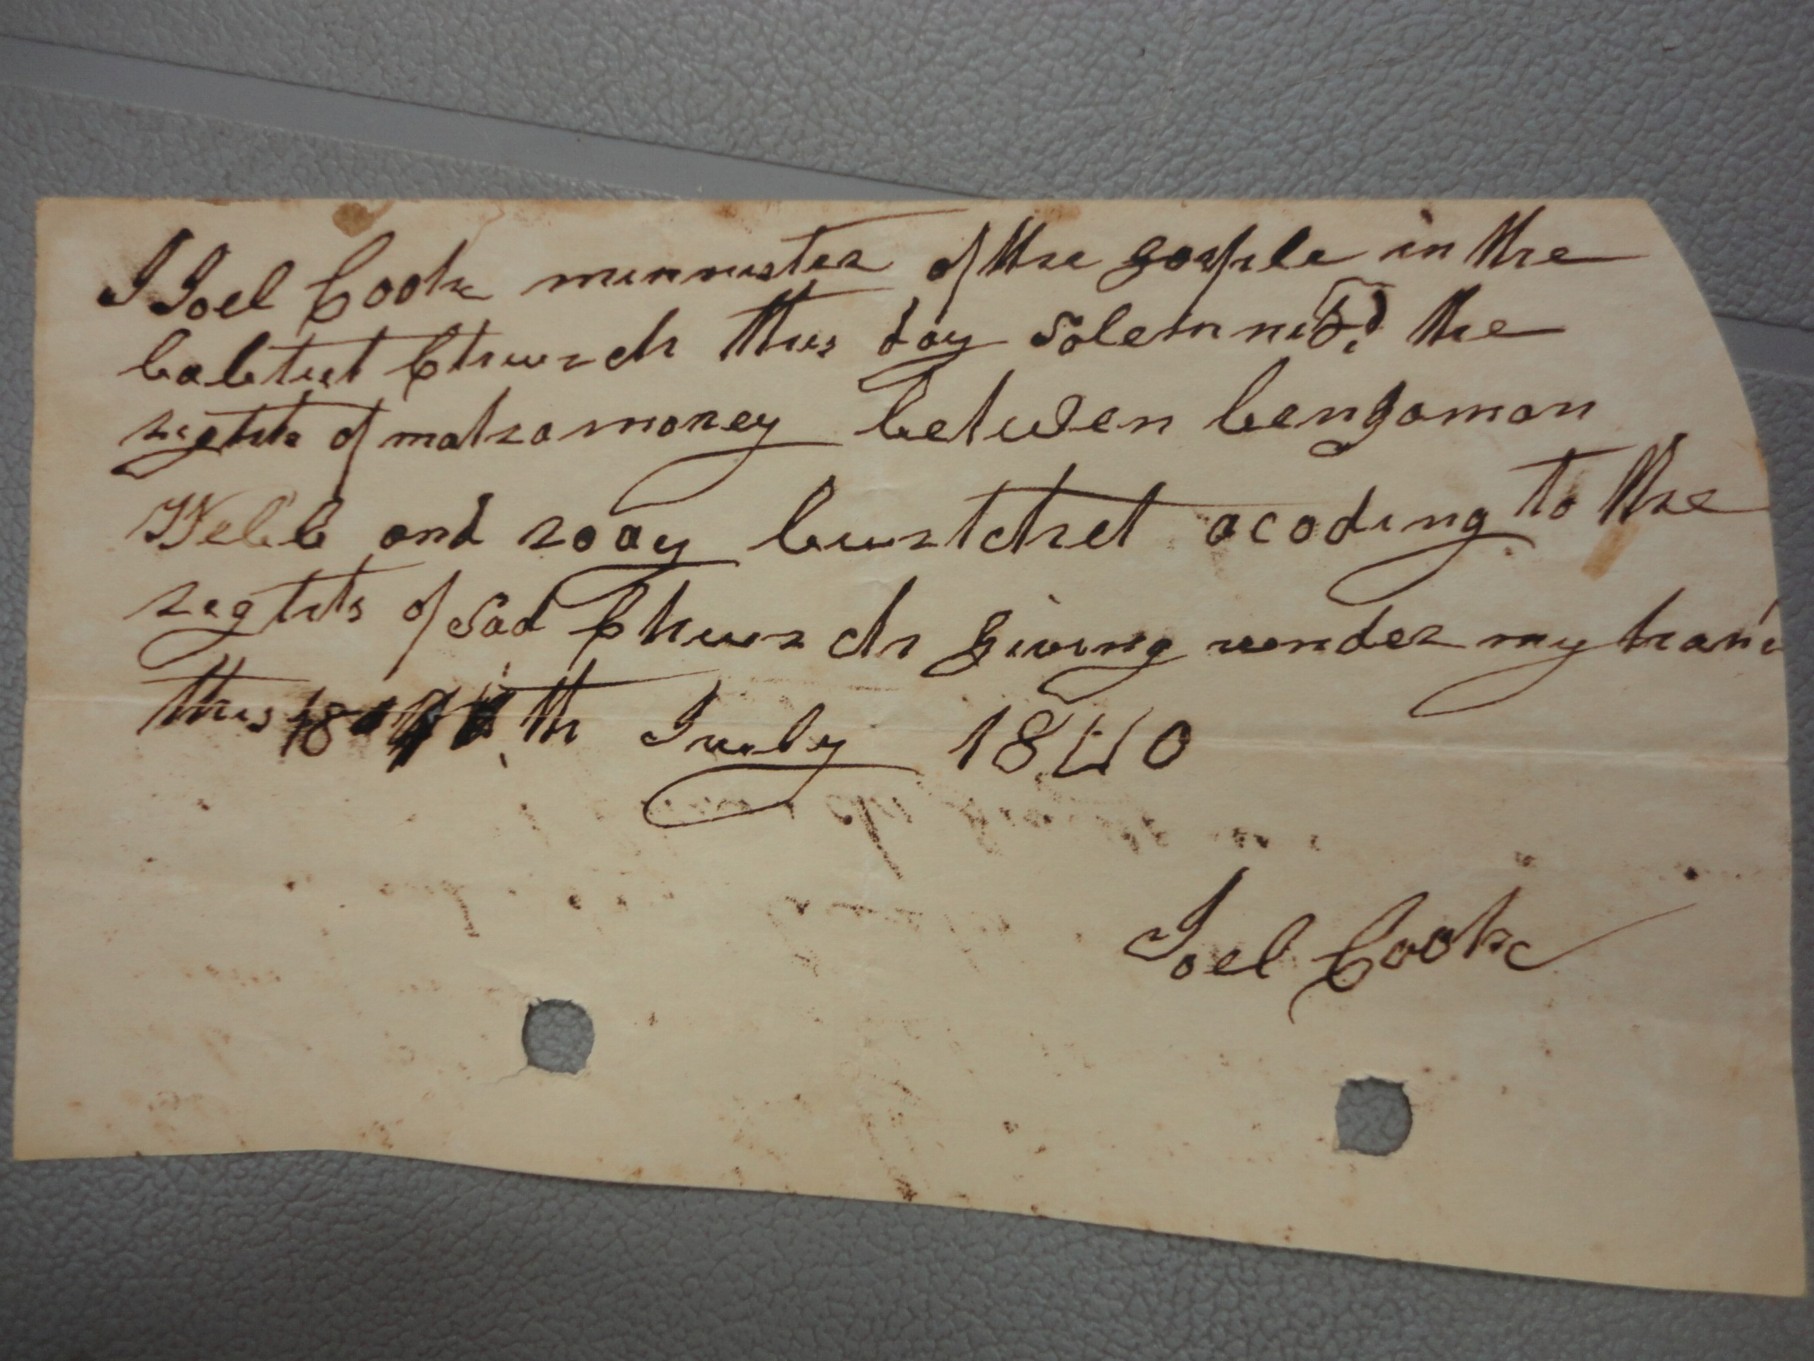 I Joel Cooke minnister of the gosple in the
babtist Church this day solemnizd the
rights of matramoney betwen bengaman
Webb and roay burtchet acoding to the
rights of sad Church giving under my hand
this 18 th July 1840
Joel Cooke